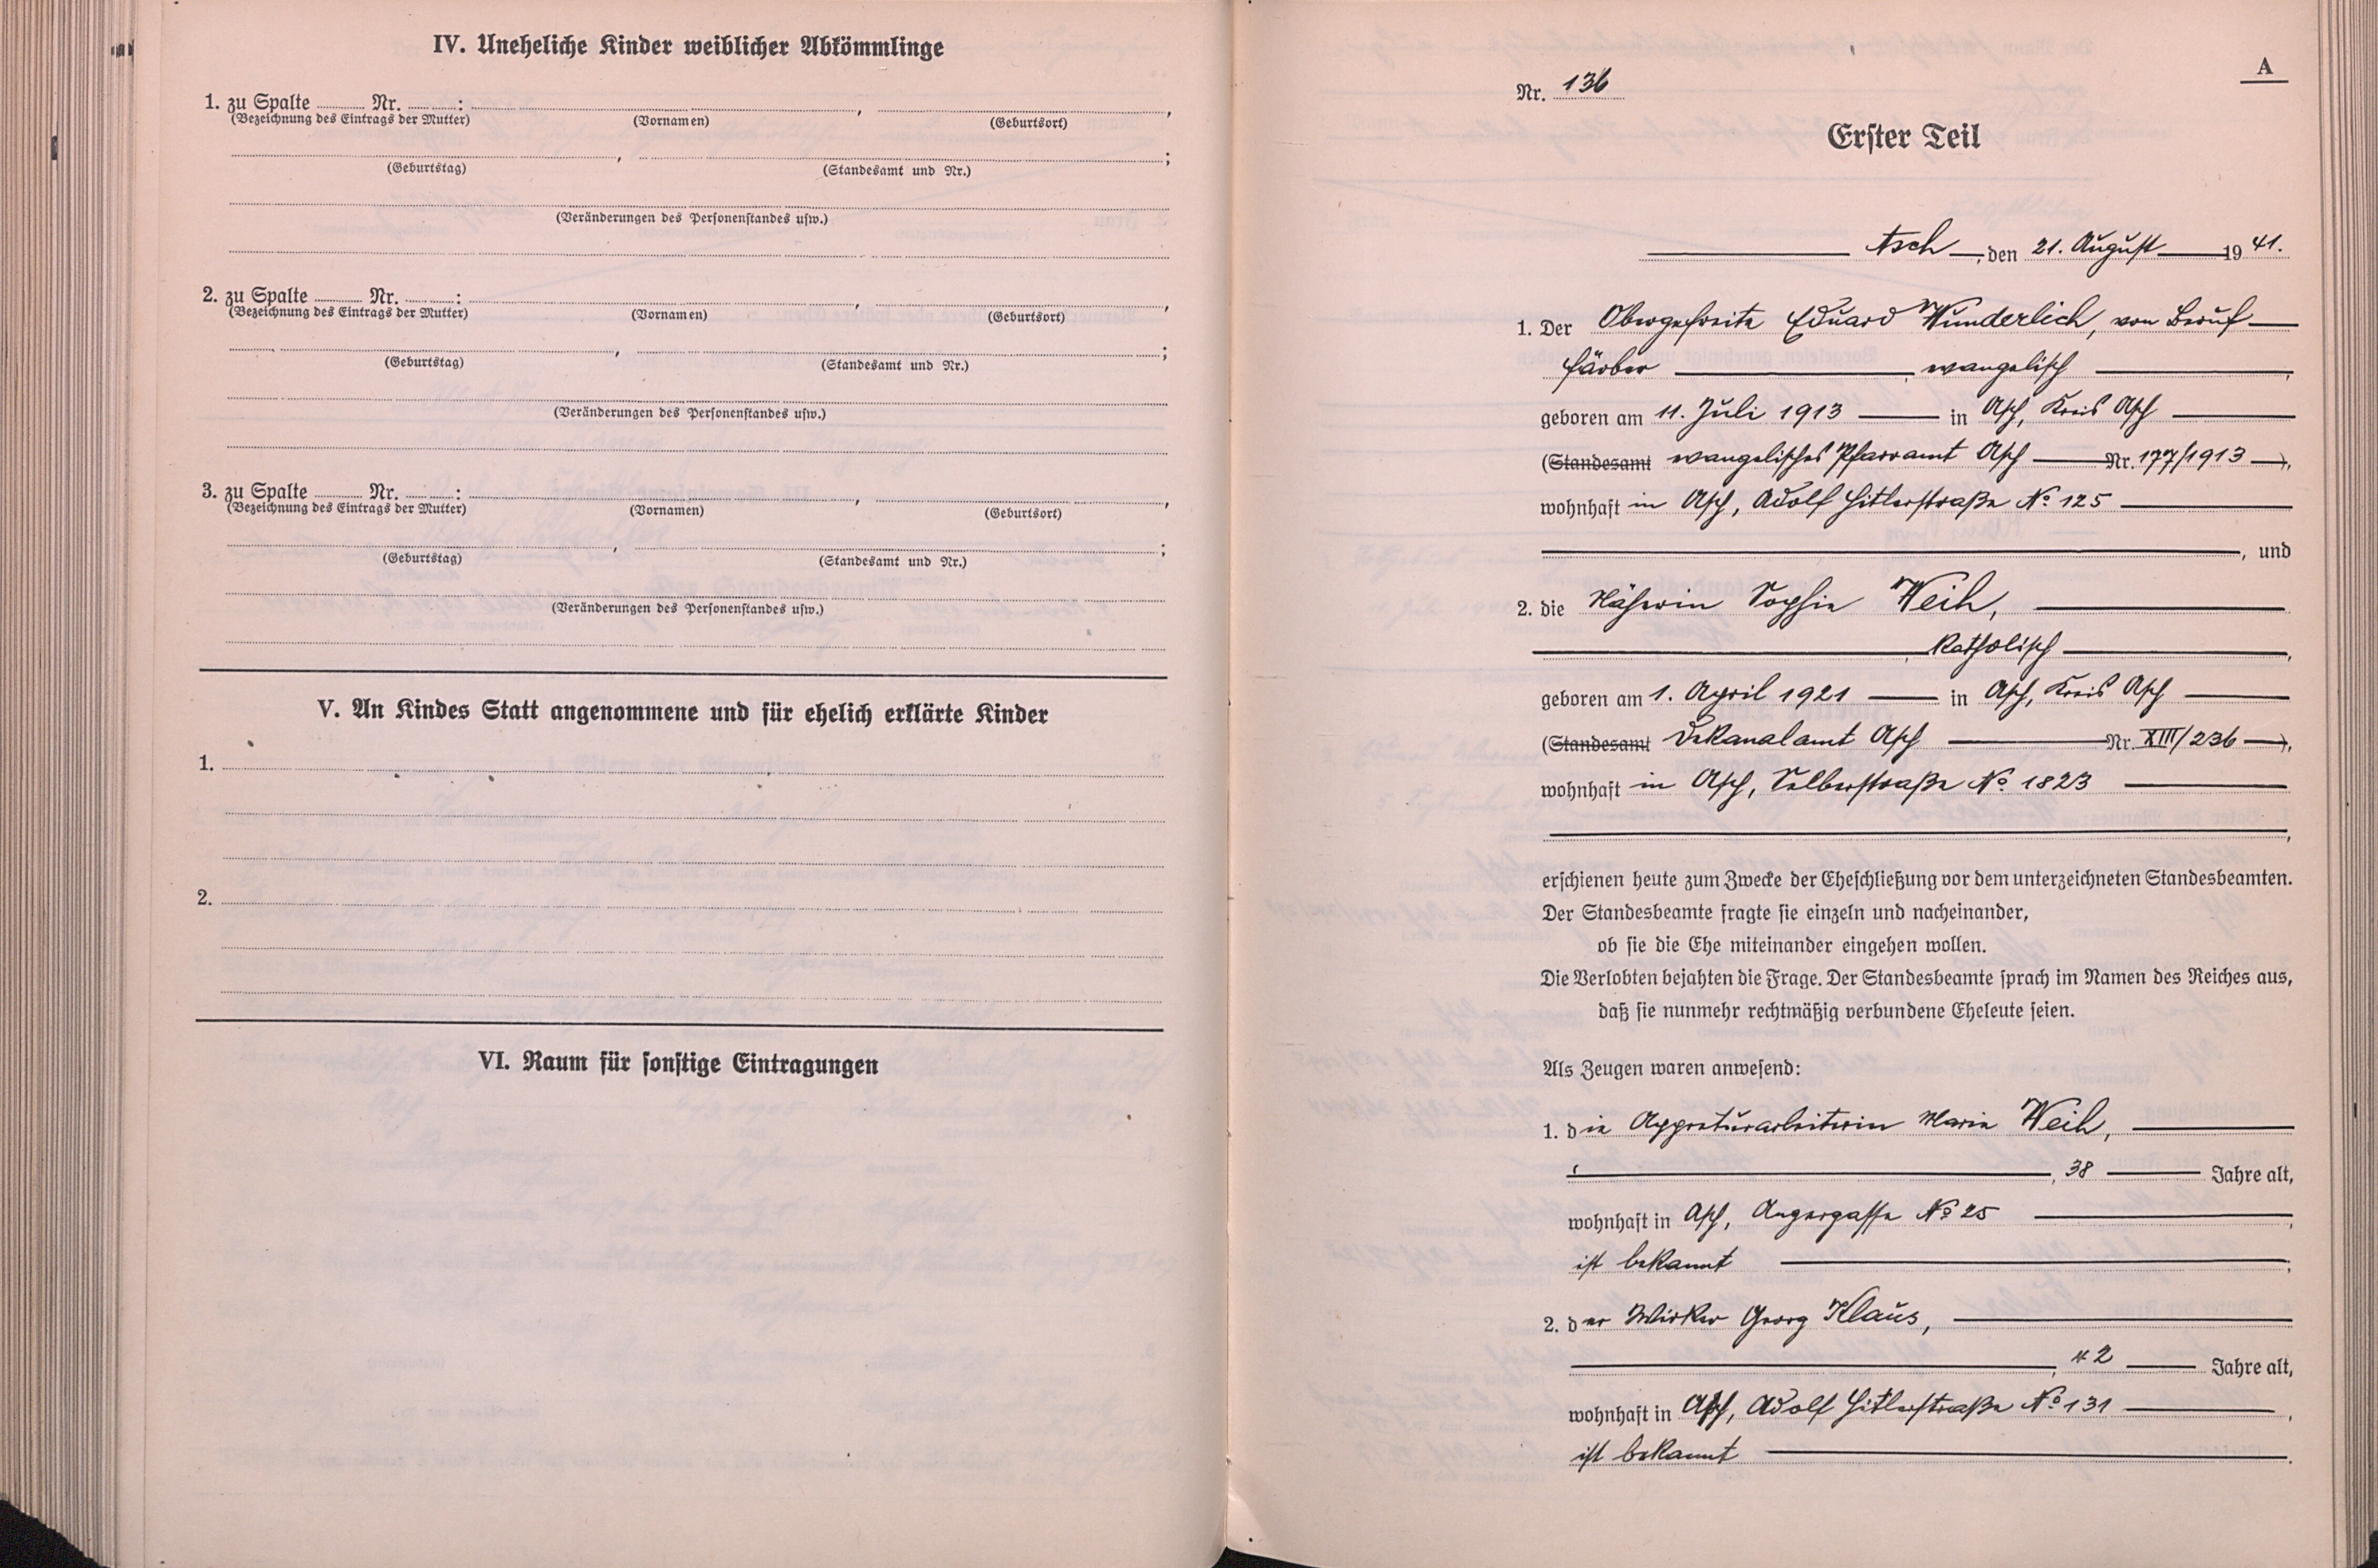 IV. Uneheliche Kinder weiblicher Abkömmlinge
1. zu Spalte Nr. : , ,
(Bezeichnung des Eintrags der Mutter) (Vornamen) (Geburtsort)
, ;
(Geburtstag) (Standesamt und Nr.)
(Veränderungen des Personenstandes usw.)
2. zu Spalte Nr. : , ,
(Bezeichnung des Eintrags der Mutter) (Vornamen) (Geburtsort)
, ;
(Geburtstag) (Standesamt und Nr.)
(Veränderungen des Personenstandes usw.)
3. zu Spalte Nr. : , ,
(Bezeichnung des Eintrags der Mutter) (Vornamen) (Geburtsort)
, ;
(Geburtstag) (Standesamt und Nr.)
(Veränderungen des Personenstandes usw.)
V. An Kindes Statt angenommene und für ehelich erklärte Kinder
1.
2.
VI. Raum für sonstige Eintragungen
A
Nr. 136
Erster Teil
Asch, den 21. August 1941.
1. Der Obergefreite Eduard Wunderlich, von Beruf
Färber, evangelisch,
geboren am 11. Juli 1913 in Asch, Kreis Asch
(Standesamt evangelisches Pfarramt Asch Nr. 177/1913),
wohnhaft in Asch, Adolf Hitlerstraße No. 125
, und
2. die Näherin Sophie Weih,
, katholisch,
geboren am 1. April 1921 in Asch, Kreis Asch
(Standesamt Dekanalamt Asch Nr. XIII/236),
wohnhaft in Asch, Selberstraße No. 1823
,
erschienen heute zum Zwecke der Eheschließung vor dem unterzeichneten Standesbeamten.
Der Standesbeamte fragte sie einzeln und nacheinander,
ob sie die Ehe miteinander eingehen wollen.
Die Verlobten bejahten die Frage. Der Standesbeamte sprach im Namen des Reiches aus,
daß sie nunmehr rechtmäßig verbundene Eheleute seien.
Als Zeugen waren anwesend:
1. die Appreturarbeiterin Maria Weih,
, 38 Jahre alt,
wohnhaft in Asch, Angergasse No. 25,
ist bekannt;
2. der Wirker Georg Klaus,
, 42 Jahre alt,
wohnhaft in Asch, Adolf Hitlerstraße No. 131,
ist bekannt.